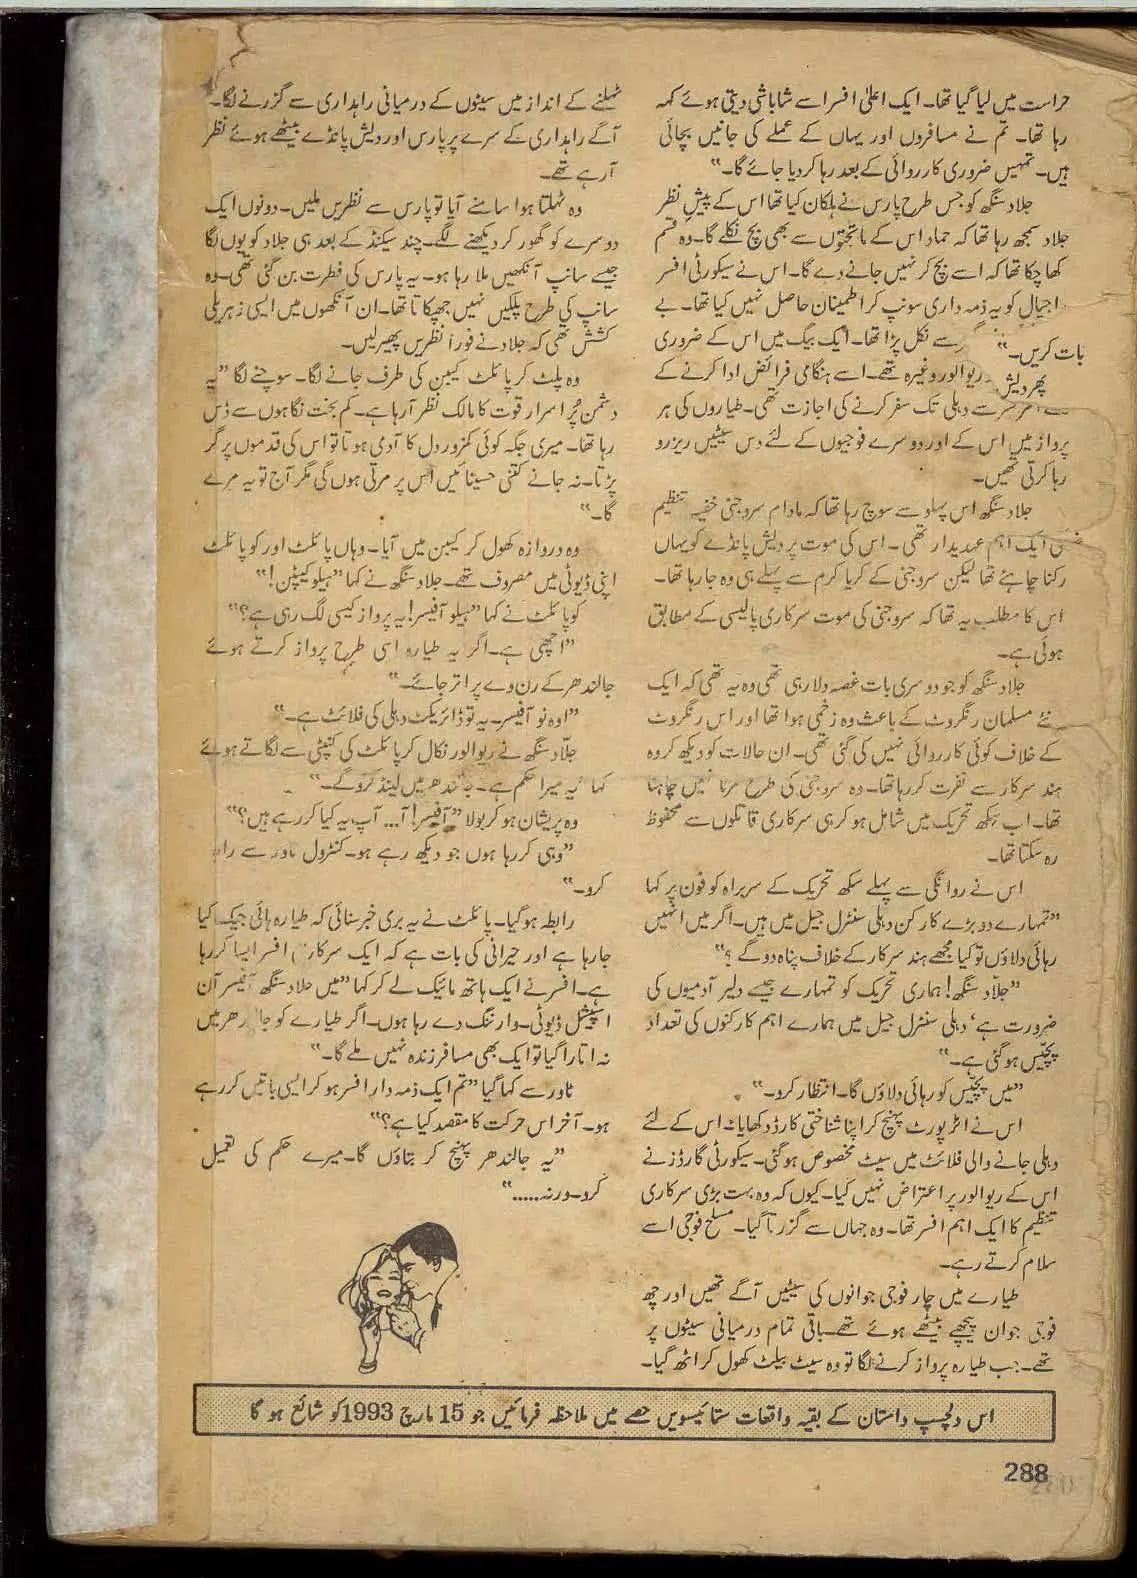 حراست میں لیا گیا تھا۔ ایک اعلیٰ افسر اسے شاباشی دیتی ہوئے کہہ
رہا تھا۔ تم نے مسافروں اور یہاں کے عملے کی جانیں بچائی
ہیں۔ تمہیں ضروری کارروائی کے بعد رہا کر دیا جائے گا۔"
جلاد سنگھ کو جس طرح پارس نے ہلکان کیا تھا اس کے پیش نظر
جلاد سمجھ رہا تھا کہ حماد اس کے ماتحتوں سے بھی بچ نکلے گا۔ وہ قسم
کھا چکا تھا کہ اسے بچ کر نہیں جانے دے گا۔ اس نے سیکورٹی افسر
اجیال کو یہ ذمہ داری سونپ کر اطمینان حاصل نہیں کیا تھا۔ بے
بات کریں۔" سے نکل پڑا تھا۔ ایک بیگ میں اس کے ضروری
پھر دیش ریوالور وغیرہ تھے۔ اسے ہنگامی فرائض ادا کرنے کے
سے دہلی تک سفر کرنے کی اجازت تھی۔ طیاروں کی ہر
پرواز میں اس کے اور دوسرے فوجیوں کے لئے دس سیٹیں ریزرو
رہا کرتی تھیں۔
جلاد سنگھ اس پہلو سے سوچ رہا تھا کہ مادام سروجنی خفیہ تنظیم
کی ایک اہم عہدیدار تھی۔ اس کی موت پر دیش پانڈے کو یہاں
رکنا چاہئے تھا لیکن سروجنی کے کریا کرم سے پہلے ہی وہ جا رہا تھا۔
اس کا مطلب یہ تھا کہ سروجنی کی موت سرکاری پالیسی کے مطابق
ہوئی ہے۔
جلاد سنگھ کو جو دوسری بات غصہ دلا رہی تھی وہ یہ تھی کہ ایک
نئے مسلمان رنگروٹ کے باعث وہ زخمی ہوا تھا اور اس رنگروٹ
کے خلاف کوئی کارروائی نہیں کی گئی تھی۔ ان حالات کو دیکھ کر وہ
ہند سرکار سے نفرت کر رہا تھا۔ وہ سروجنی کی طرح مرنا نہیں چاہتا
تھا۔ اب سکھ تحریک میں شامل ہو کر ہی سرکاری قاتلوں سے محفوظ
رہ سکتا تھا۔
اس نے روانگی سے پہلے سکھ تحریک کے سربراہ کو فون پر کہا
"تمہارے دو بڑے کارکن دہلی سنٹرل جیل میں ہیں۔ اگر میں انہیں
رہائی دلاؤں تو کیا مجھے ہند سرکار کے خلاف پناہ دو گے؟"
"جلاد سنگھ! ہماری تحریک کو تمہارے جیسے دلیر آدمیوں کی
ضرورت ہے' دہلی سنٹرل جیل میں ہمارے اہم کارکنوں کی تعداد
پچیس ہو گئی ہے۔"
"میں پچیس کو رہائی دلاؤں گا۔ انتظار کرو۔"
اس نے ائرپورٹ پہنچ کر اپنا شناختی کارڈ دکھایا۔ اس کے لئے
دہلی جانے والی فلائٹ میں سیٹ مخصوص ہو گئی۔ سیکورٹی گارڈز نے
اس کے ریوالور پر اعتراض نہیں کیا۔ کیوں کہ وہ بہت بڑی سرکاری
تنظیم کا ایک اہم افسر تھا۔ وہ جہاں سے گزرتا گیا۔ مسلح فوجی اسے
سلام کرتے رہے۔
طیارے میں چار فوجی جوانوں کی سیٹیں آگے تھیں اور چھ
فوجی جوان پیچھے بیٹھے ہوئے تھے۔ باقی تمام درمیانی سیٹوں پر
تھے۔ جب طیارہ پرواز کرنے لگا تو وہ سیٹ بیلٹ کھول کر اٹھ گیا۔
ٹہلنے کے انداز میں سیٹوں کے درمیانی راہداری سے گزرنے لگا۔
آگے راہداری کے سرے پر پارس اور دیش پانڈے بیٹھے ہوئے نظر
آ رہے تھے۔
وہ ٹہلتا ہوا سامنے آیا تو پارس سے نظریں ملیں۔ دونوں ایک
دوسرے کو گھور کر دیکھنے لگے۔ چند سیکنڈ کے بعد ہی جلاد کو یوں لگا
جیسے سانپ آنکھیں ملا رہا ہو۔ یہ پارس کی فطرت بن گئی تھی۔ وہ
سانپ کی طرح پلکیں نہیں جھپکاتا تھا۔ ان آنکھوں میں ایسی زہریلی
کشش تھی کہ جلاد نے فوراً نظریں پھیر لیں۔
وہ پلٹ کر پائلٹ کیبن کی طرف جانے لگا۔ سوچنے لگا "یہ
دشمن پُراسرار قوت کا مالک نظر آ رہا ہے۔ کم بخت نگاہوں سے ڈس
رہا تھا۔ میری جگہ کوئی کمزور دل کا آدمی ہوتا تو اس کی قدموں پر گر
پڑتا۔ نہ جانے کتنی حسینائیں اس پر مرتی ہوں گی مگر آج تو یہ مرے
گا۔"
وہ دروازہ کھول کر کیبن میں آیا۔ وہاں پائلٹ اور کو پائلٹ
اپنی ڈیوٹی میں مصروف تھے۔ جلاد سنگھ نے کہا "ہیلو کیپٹن!"
کو پائلٹ نے کہا "ہیلو آفیسر! یہ پرواز کیسی لگ رہی ہے؟"
"اچھی ہے۔ اگر یہ طیارہ اسی طرح پرواز کرتے ہوئے
جالندھر کے رن وے پر اتر جائے۔"
"اوہ نو آفیسر۔ یہ تو ڈائریکٹ دہلی کی فلائٹ ہے۔"
جلاد سنگھ نے ریوالور نکال کر پائلٹ کی کنپٹی سے لگاتے ہوئے
کہا "یہ میرا حکم ہے۔ جالندھر میں لینڈ کرو گے۔"
وہ پریشان ہو کر بولا "آفیسر! آ... آپ یہ کیا کر رہے ہیں؟"
"وہی کر رہا ہوں جو دیکھ رہے ہو۔ کنٹرول ٹاور سے رابطہ
کرو۔"
رابطہ ہو گیا۔ پائلٹ نے یہ بری خبر سنائی کہ طیارہ ہائی جیک کیا
جا رہا ہے اور حیرانی کی بات ہے کہ ایک سرکاری افسر ایسا کر رہا
ہے۔ افسر نے ایک ہاتھ مائیک لے کر کہا "میں جلاد سنگھ آفیسر آن
اسپیشل ڈیوٹی۔ وارننگ دے رہا ہوں۔ اگر طیارے کو جالندھر میں
نہ اتارا گیا تو ایک بھی مسافر زندہ نہیں ملے گا۔"
ٹاور سے کہا گیا "تم ایک ذمہ دار افسر ہو کر ایسی باتیں کر رہے
ہو۔ آخر اس حرکت کا مقصد کیا ہے؟"
"یہ جالندھر پہنچ کر بتاؤں گا۔ میرے حکم کی تعمیل
کرو۔ ورنہ....."
اس دلچسپ داستان کے بقیہ واقعات ستائیسویں حصے میں ملاحظہ فرمائیں جو 15 مارچ 1993 کو شائع ہو گا
288